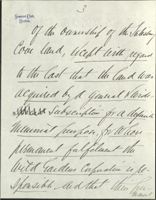 3
Somerset Club,
Boston.
of the ownership of the
Cove land, except with regard
to the East that the land was
acquired by a General
subscription for a definite
memorial purpose, for whose
permanent fulfilment the
Wild Gardens Corporation is re-
sponsible, and that